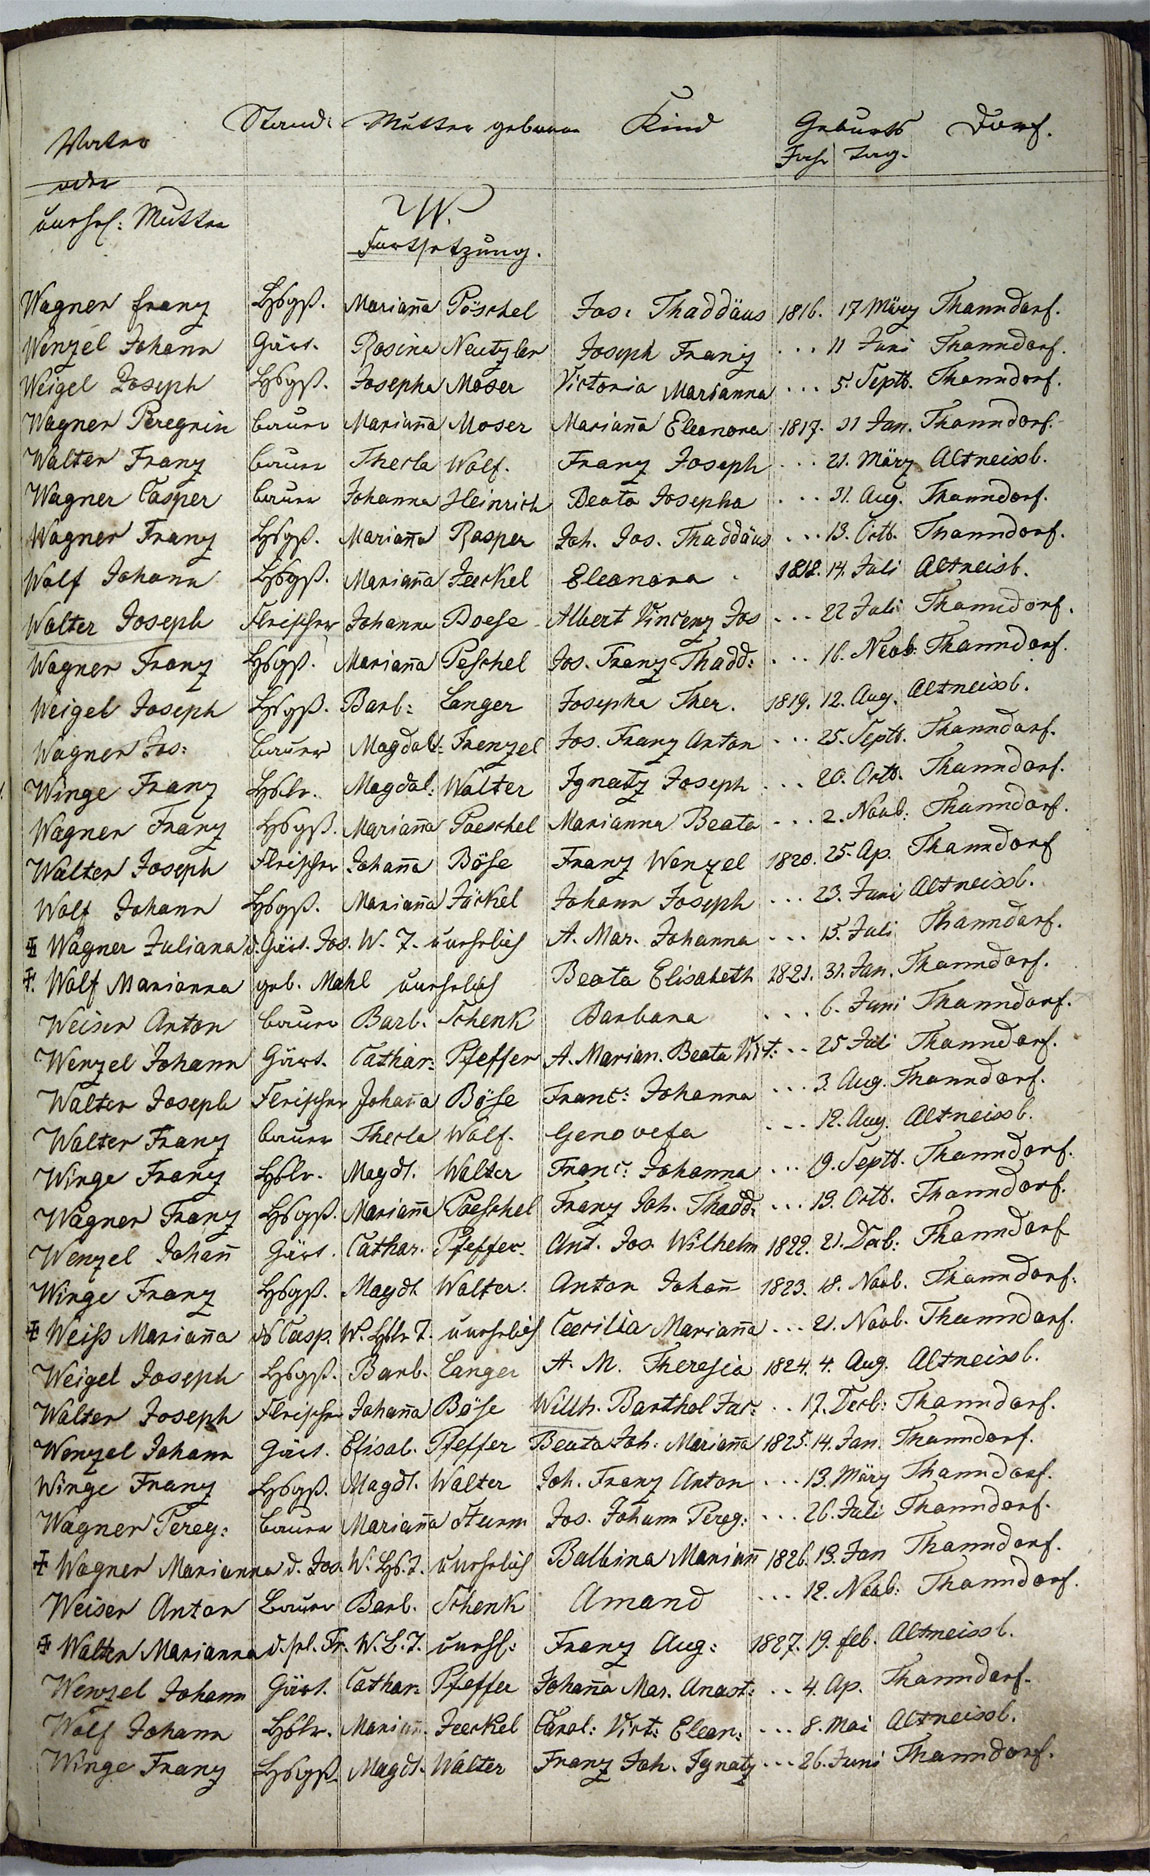 Vater Stand: Mutter geborne Kind Geburts Dorf.
oder Jahr Tag.
unehel: Mutter
W.
Fortsetzung.
Wagner Franz Hßgß. Mariañа Pöschel Jos: Thaddäus 1816. 17 März Thanndorf.
Wenzel Johann Gärt. Rosina Neutzler Joseph Franz ... 11 Juni Thanndorf.
Weigel Joseph Hßgß. Josepha Moser Victoria Marianna ... 5. Septb. Thanndorf.
Wagner Peregrin Bauer Mariaña Moser Mariaña Eleonora 1817. 31 Jan. Thanndorf.
Walter Franz Bauer Thecla Wolf. Franz Joseph ... 21. März Altneissb.
Wagner Casper Bauer Johanna Heinrich Beata Josepha ... 31. Aug. Thanndorf.
Wagner Franz Hßgß. Mariaña Rasper Joh. Jos. Thaddäus ... 13. Octb. Thanndorf.
Wolf Johann Hßgß. Mariaña Jeckel Eleonora 1818. 14. Juli Altneisb.
Walter Joseph Fleischer Johanna Boese Albert Vincenz Jos ... 22 Juli Thanndorf.
Wagner Franz Hßgß. Mariaña Peschel Jos. Franz Thadd: ... 16. Novb. Thanndorf.
Weigel Joseph Hßgß. Barb: Langer Josepha Ther. 1819. 12. Aug. Altneissb.
Wagner Jos: Bauer Magdal: Frenzel Jos. Franz Anton ... 25. Septb. Thanndorf.
Winge Franz Hßlr. Magdal: Walter Ignatz Joseph ... 20. Octb. Thanndorf.
Wagner Franz Hßgß. Mariaña Paeschel Marianna Beata ... 2. Novb: Thanndorf.
Walter Joseph Fleischer Johaña Böse Franz Wenzel 1820. 25. Ap. Thanndorf
Wolf Johann Hßgß. Mariaña Jäckel Johann Joseph ... 23. Juni Altneissb.
Wagner Juliana d. Gärt. Jos. W. T. unehelich A. Mar. Johanna ... 15. Juli Thanndorf.
Wolf Marianna geb. Mahl unehelich Beata Elisabeth 1821. 31. Jan. Thanndorf.
Weiser Anton Bauer Barb. Schenk Barbara ... 6. Juni Thanndorf.
Wenzel Johann Gärt. Cathar: Pfeffer A. Marian. Beata Vict: .. 25 Juli Thanndorf.
Walter Joseph Fleischer Johaña Böse Franc: Johanna ... 3. Aug. Thanndorf.
Walter Franz Bauer Thecla Wolf. Genovefa ... 12. Aug. Altneissb.
Winge Franz Hßlr. Magdl. Walter Franc. Johanna ... 19. Septb. Thanndorf.
Wagner Franz Hßgß. Mariaña Paeschel Franz Joh. Thadd. ... 13. Octb. Thanndorf.
Wenzel Johañ Gärt. Cathar. Pfeffer. Ant. Jos. Wilhelm 1822. 21. Decb: Thanndorf
Winge Franz Hßgß. Magdl Walter. Anton Johañ 1823. 18. Novb. Thanndorf.
Weiss Mariaña ds Casp. W. Hßlr T. unehelich Caecilia Mariaña ... 21. Novb. Thanndorf.
Weigel Joseph Hßgß. Barb. Langer A. M. Theresia 1824. 4. Aug. Altneissb.
Walter Joseph Fleischer Johaña Böse Willh. Barthol Jac: .. 17. Decb: Thanndorf.
Wenzel Johann Gärt. Elisab. Pfeffer Beata Joh. Mariaña 1825. 14. Jan. Thanndorf.
Winge Franz Hßgß. Magdl. Walter Joh. Franz Anton ... 13. März Thanndorf.
Wagner Pereg: Bauer Mariaña Sturm Jos. Johann Pereg: ... 26. Juli Thanndorf.
Wagner Marianna d. Jos. W. Hß. T. unehelich Balbina Mariañ 1826. 13. Jan Thanndorf.
Weiser Anton Bauer Barb. Schenk Amand ... 12. Novb: Thanndorf.
Walter Marianna d. sel. Fr. W. B. T. unehl: Franz Aug: 1827. 19. feb. Altneissb.
Wenzel Johann Gärt. Cathar: Pfeffer Johaña Mar. Anast: .. 4. Ap. Thanndorf.
Wolf Johann Hßlr. Mariañ. Jeeckel Carol: Vict: Eleon: ... 8. Mai Altneissb.
Winge Franz Hßgß. Magdl. Walter Franz Joh. Ignatz ... 26. Juni Thanndorf.